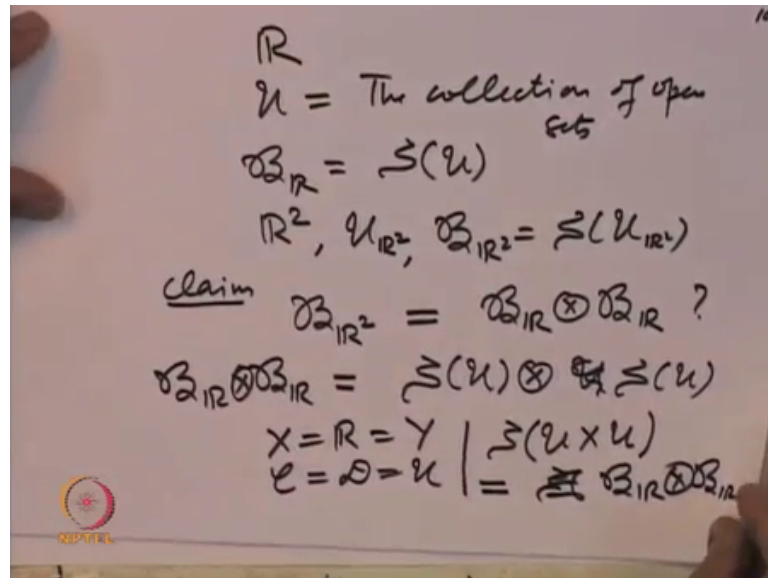 ℝ
𝒰 = The collection of open
sets
ℬ_ℝ = S(𝒰)
ℝ², 𝒰_ℝ², ℬ_ℝ² = S(𝒰_ℝ²)
claim ℬ_ℝ² = ℬ_ℝ ⊗ ℬ_ℝ ?
ℬ_ℝ ⊗ ℬ_ℝ = S(𝒰) ⊗ S(𝒰)
X = ℝ = Y | S(𝒰 × 𝒰)
𝒞 = 𝒟 = 𝒰 | = ℬ_ℝ ⊗ ℬ_ℝ
NPTEL